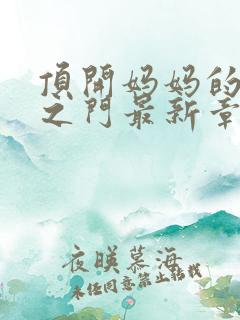 頂開妈妈的
之门最新章
夜昳慕海
未任同意禁止转载